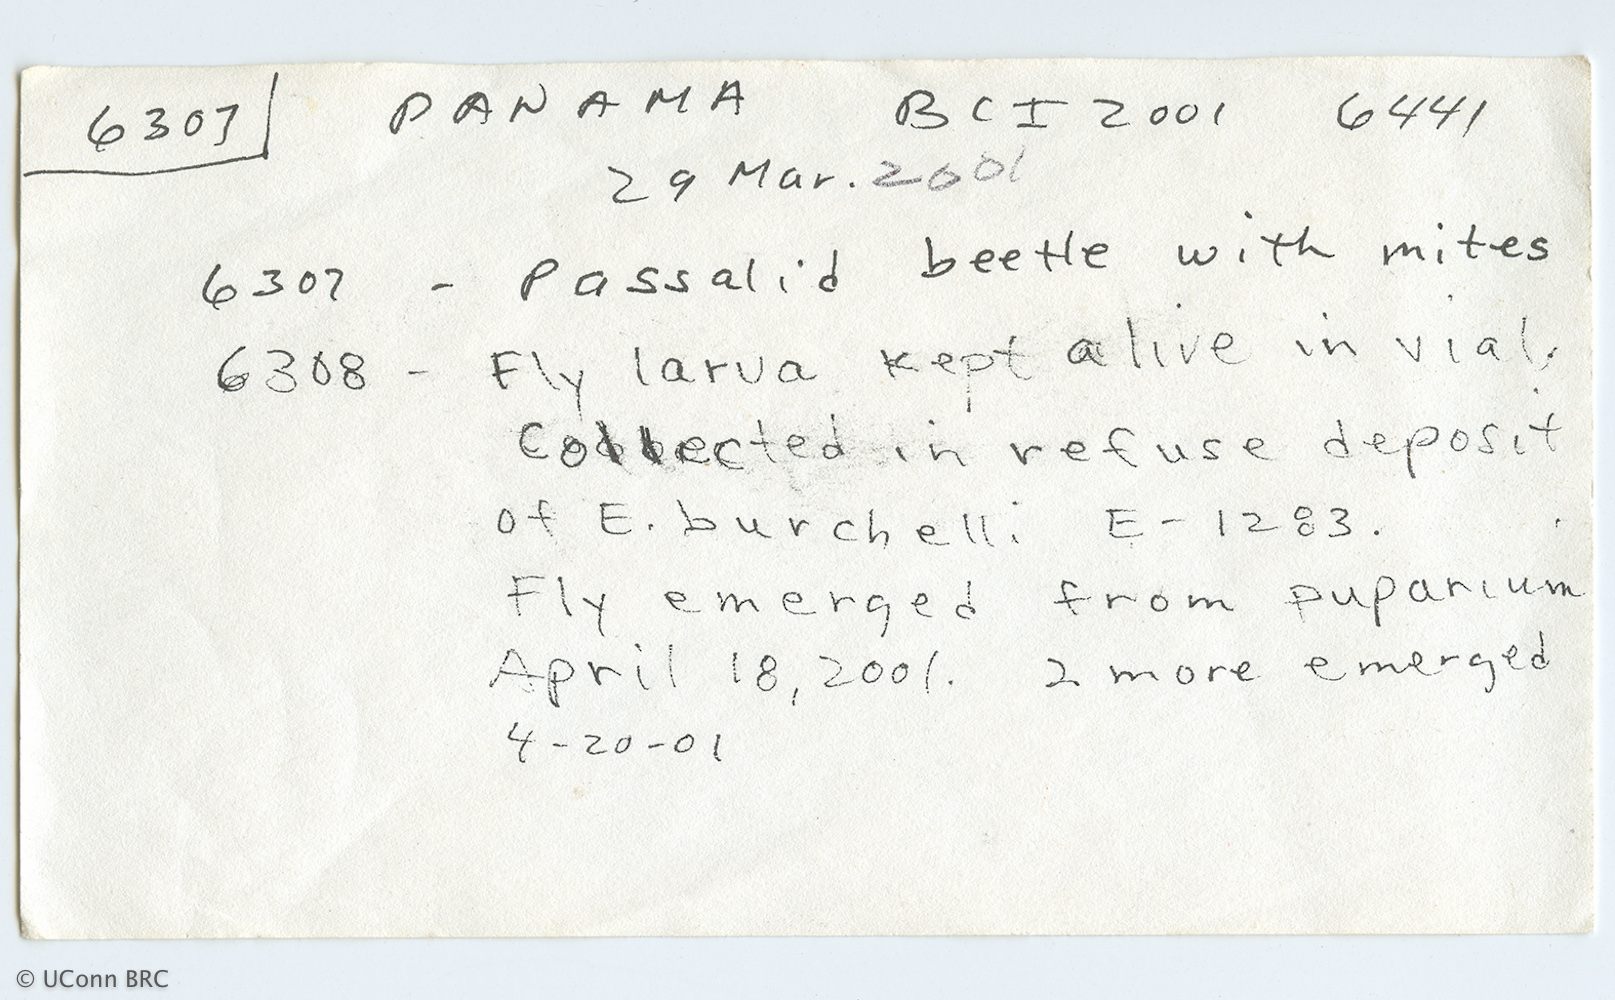 6307 PANAMA BCI 2001 6441
29 Mar. 2001
6307 - Passalid beetle with mites
6308 - Fly larva kept alive in vial.
Collected in refuse deposit
of E. burchelli E-1283.
Fly emerged from puparium
April 18, 2001. 2 more emerged
4-20-01
© UConn BRC